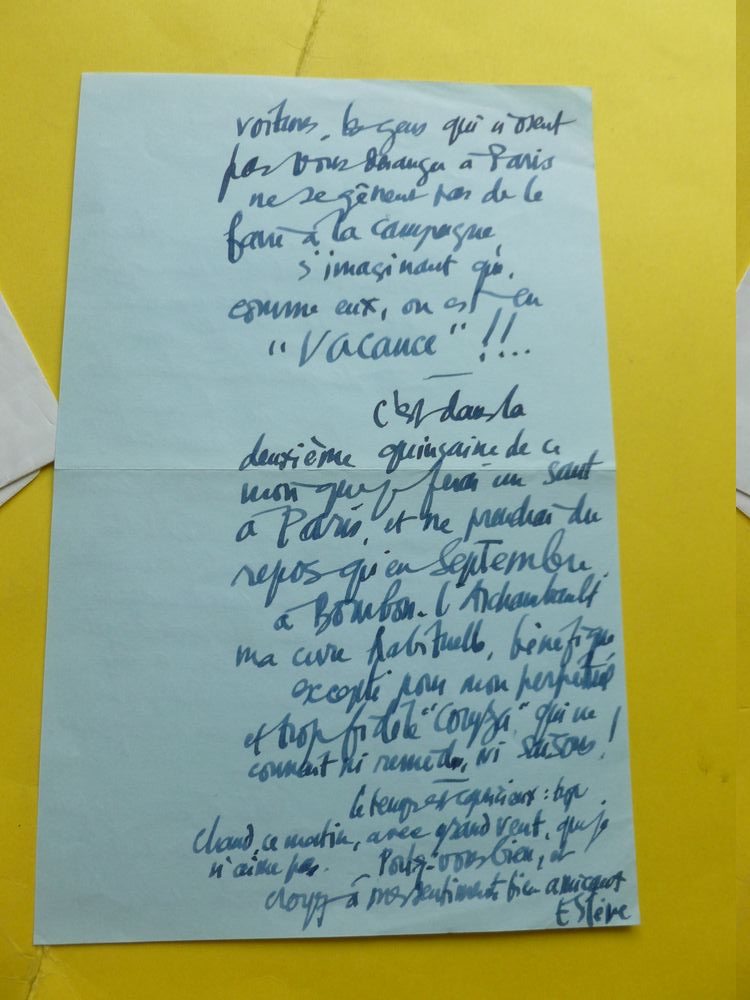 voitures, les gens qui n'osent
pas vous déranger à Paris
ne se gênent pas de le
faire à la campagne
s'imaginant que,
comme eux, on est en
"Vacance" !!...
C'est dans la
deuxième quinzaine de ce
mois que je ferai un saut
à Paris, et ne prendrai du
repos qu'en Septembre
à Bourbon-l'Archambault
ma cure habituelle, bénéfique
excepté pour mon perpétuel
et trop fidèle "Coryza" qui ne
connait ni remèdes, ni saisons !
le temps est capricieux : trop
chaud, ce matin, avec grand vent, que je
n'aime pas. Portez-vous bien, et
croyez à mes sentiments bien amicaux
Estève